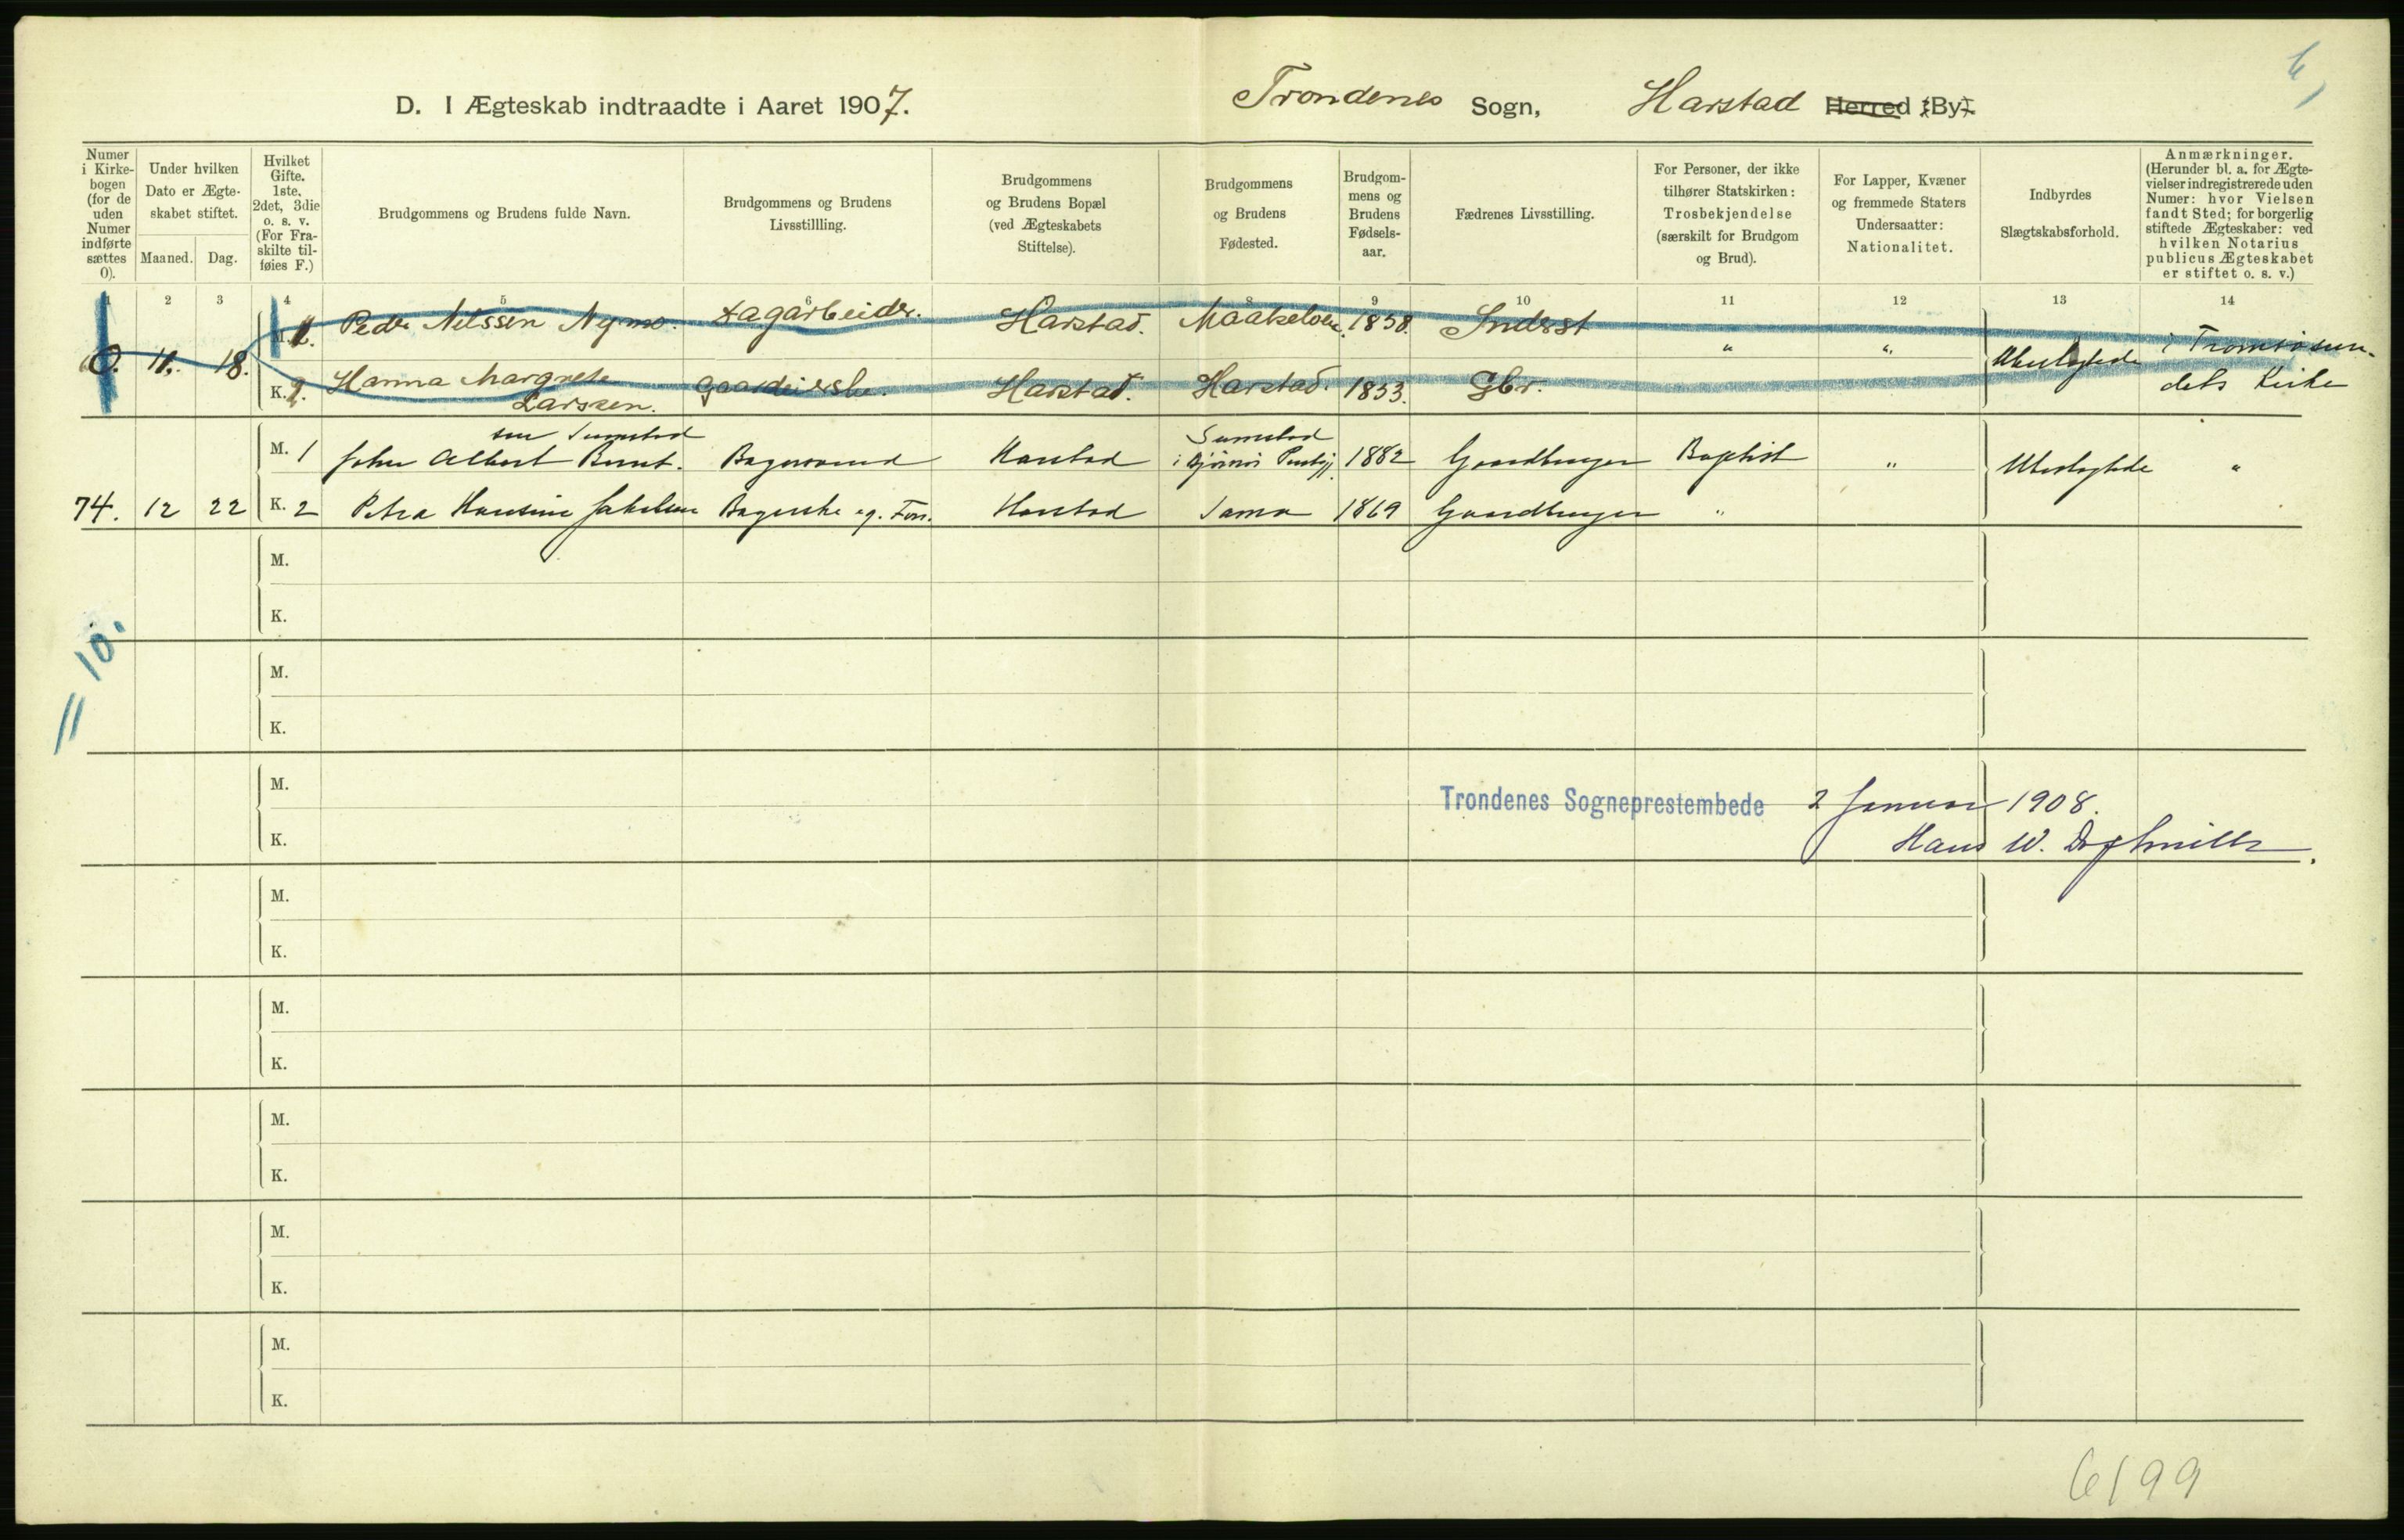 6
D. I Ægteskab indtraadte i Aaret 1907.
Trondenes Sogn, Harstad Herred (By).
Numer i Kirkebogen (for de uden Numer indførte sættes 0).
Under hvilken Dato er Ægteskabet stiftet.
Maaned. Dag.
Hvilket Gifte. 1ste, 2det, 3die o. s. v. (For Fraskilte tilføies F.)
Brudgommens og Brudens fulde Navn.
Brudgommens og Brudens Livsstillling.
Brudgommens og Brudens Bopæl (ved Ægteskabets Stiftelse).
Brudgommens og Brudens Fødested.
Brudgommens og Brudens Fødselsaar.
Fædrenes Livsstilling.
For Personer, der ikke tilhører Statskirken: Trosbekjendelse (særskilt for Brudgom og Brud).
For Lapper, Kvæner og fremmede Staters Undersaatter: Nationalitet.
Indbyrdes Slægtskabsforhold.
Anmærkninger. (Herunder bl. a. for Ægtevielser indregistrerede uden Numer: hvor Vielsen fandt Sted; for borgerlig stiftede Ægteskaber: ved hvilken Notarius publicus Ægteskabet er stiftet o. s. v.)
1 2 3 4 5 6 8 9 10 11 12 13 14
M. Peder Nilssen Nymo. Dagarbeider. Harstad. Maalselven. 1858. Inderst " " i Tromsøsun-
0. 11. 18. Ubeslægtede
K. 2. Hanna Margrete Harstad. Harstad. 1853. Gbr. dets Kirke
Larssen.
sen Sumstad Sumstad
M. 1 John Albert Bernt. Bagersvend Harstad i Bjørnør 1882 Gaardbruger Baptist " Ubeslægtede "
74. 12 22 K. 2 Petra Hansine Jakobsen Bagerske Harstad Sama 1869 Gaardbruger "
M.
K.
= 10.
M.
K.
M.
Trondenes Sogneprestembede 2 Januar 1908.
K.
Hans W.
M.
K.
M.
K.
M.
K.
M.
K.
M.
K.
6199